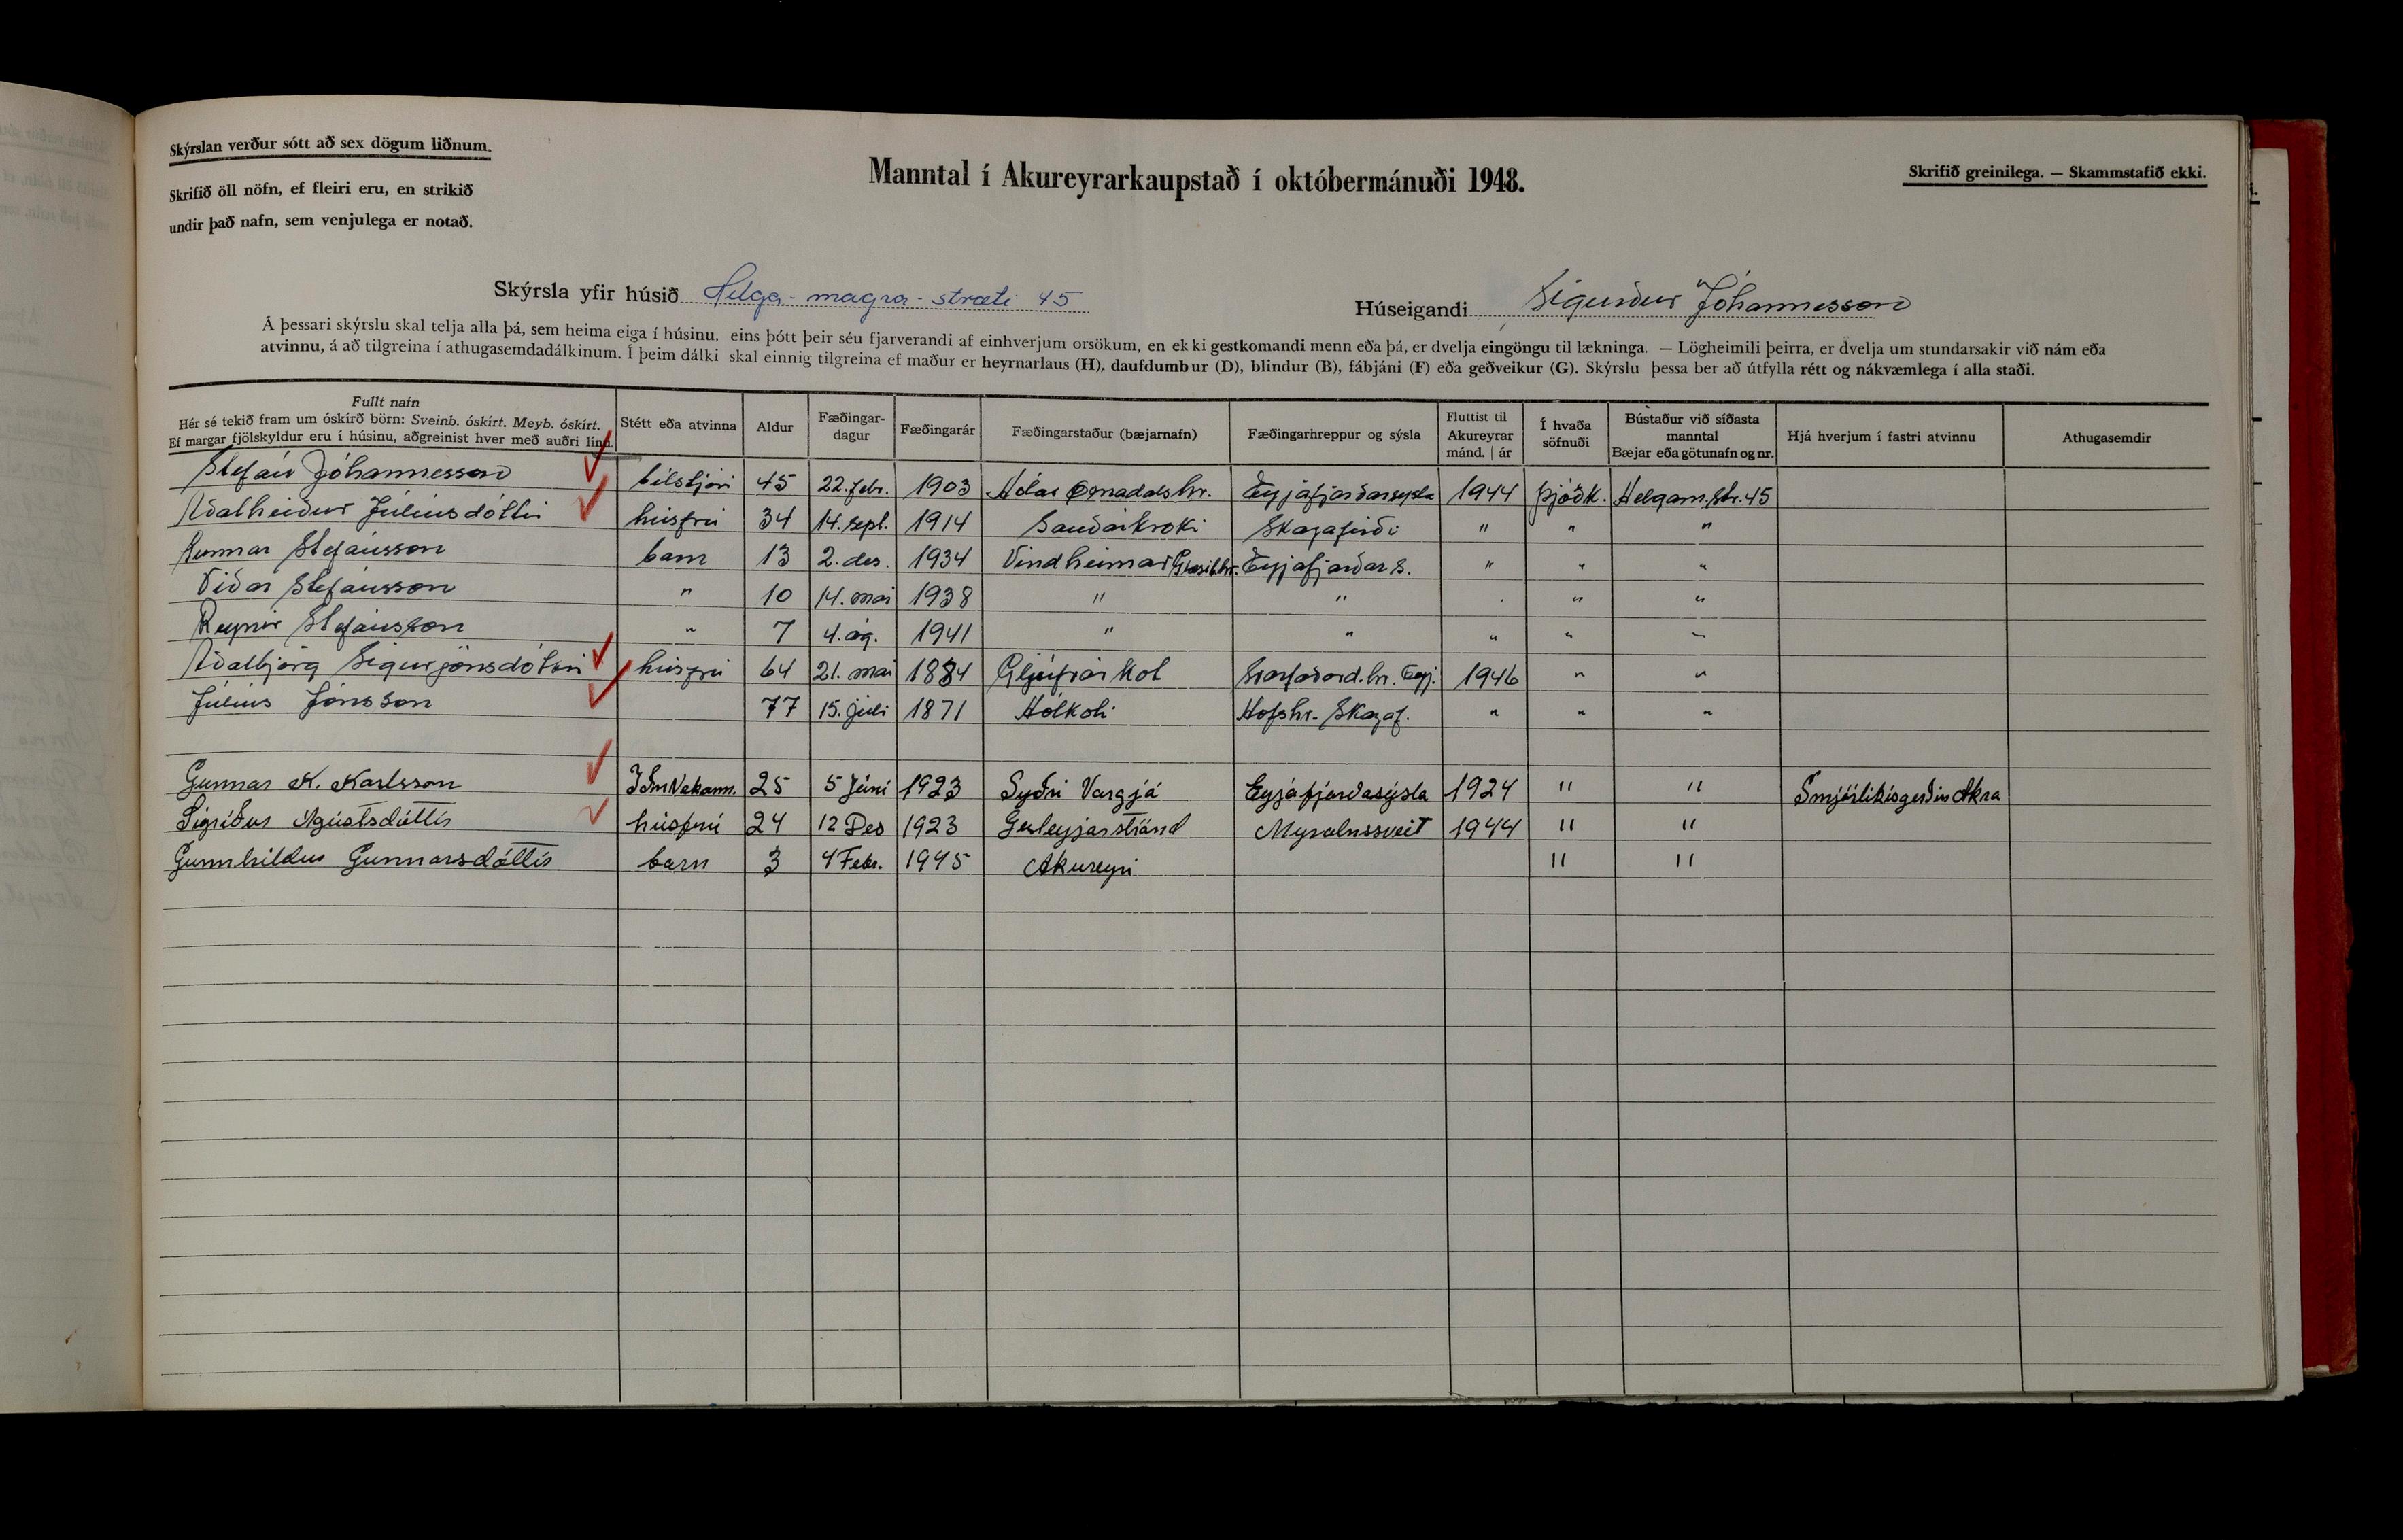 Skýrslan verður sótt að sex dögum liðnum.
Skrifið öll nöfn, ef fleiri eru, en strikið
undir það nafn, sem venjulega er notað.
Manntal í Akureyrarkaupstað í októbermánuði 1948.
Skrifið greinilega. — Skammstafið ekki.
Skýrsla yfir húsið Helga-magra-stræti 45
Húseigandi Sigurður Jóhannesson
Á þessari skýrslu skal telja alla þá, sem heima eiga í húsinu, eins þótt þeir séu fjarverandi af einhverjum orsökum, en ekki gestkomandi menn eða þá, er dvelja eingöngu til lækninga. — Lögheimili þeirra, er dvelja um stundarsakir við nám eða
atvinnu, á að tilgreina í athugasemdadálkinum. Í þeim dálki skal einnig tilgreina ef maður er heyrnarlaus (H), daufdumbur (D), blindur (B), fábjáni (F) eða geðveikur (G). Skýrslu þessa ber að útfylla rétt og nákvæmlega í alla staði.
Fullt nafn
Hér sé tekið fram um óskírð börn: Sveinb. óskírt. Meyb. óskírt.
Ef margar fjölskyldur eru í húsinu, aðgreinist hver með auðri línu.
Stétt eða atvinna
Aldur
Fæðingar-
dagur
Fæðingarár
Fæðingarstaður (bæjarnafn)
Fæðingarhreppur og sýsla
Fluttist til
Akureyrar
mánd. | ár
Í hvaða
söfnuði
Bústaður við síðasta
manntal
Bæjar eða götunafn og nr.
Hjá hverjum í fastri atvinnu
Athugasemdir
Stefán Jóhannesson bílstjóri 45 22. febr. 1903 Hólar Øxnadalshr. Eyjafjarðarsýsla 1944 Þjóðk. Helgam.str. 45
Aðalheiður Júlíusdóttir húsfrú 34 14. sept. 1914 Sauðárkroki Skagafirði " " "
Gunnar Stefánsson barn 13 2. des. 1934 Vindheimar Glæsib.hr. Eyjafjarðars. " " "
Viðar Stefánsson " 10 14. maí 1938 " " " " "
Reynir Stefánsson " 7 4. ág. 1941 " " " " "
Aðalbjörg Sigurjónsdóttir húsfrú 64 21. maí 1884 Gljúfrárkot Svarfaðard.hr. Eyj. 1946 " "
Júlíus Jónsson 77 15. júlí 1871 Hólkoti Hofshr. Skagaf. " " "
Gunnar K. Karlsson 25 5 Júní 1923 Syðri Vargjá Eyjafjarðasýsla 1924 " " Smjörlikisgerðin Akra
Sigríður Ágústsdóttir húsfrú 24 12 Des 1923 1944 " "
Gunnhildur Gunnarsdóttir barn 3 4 Febr. 1945 Akureyri " "